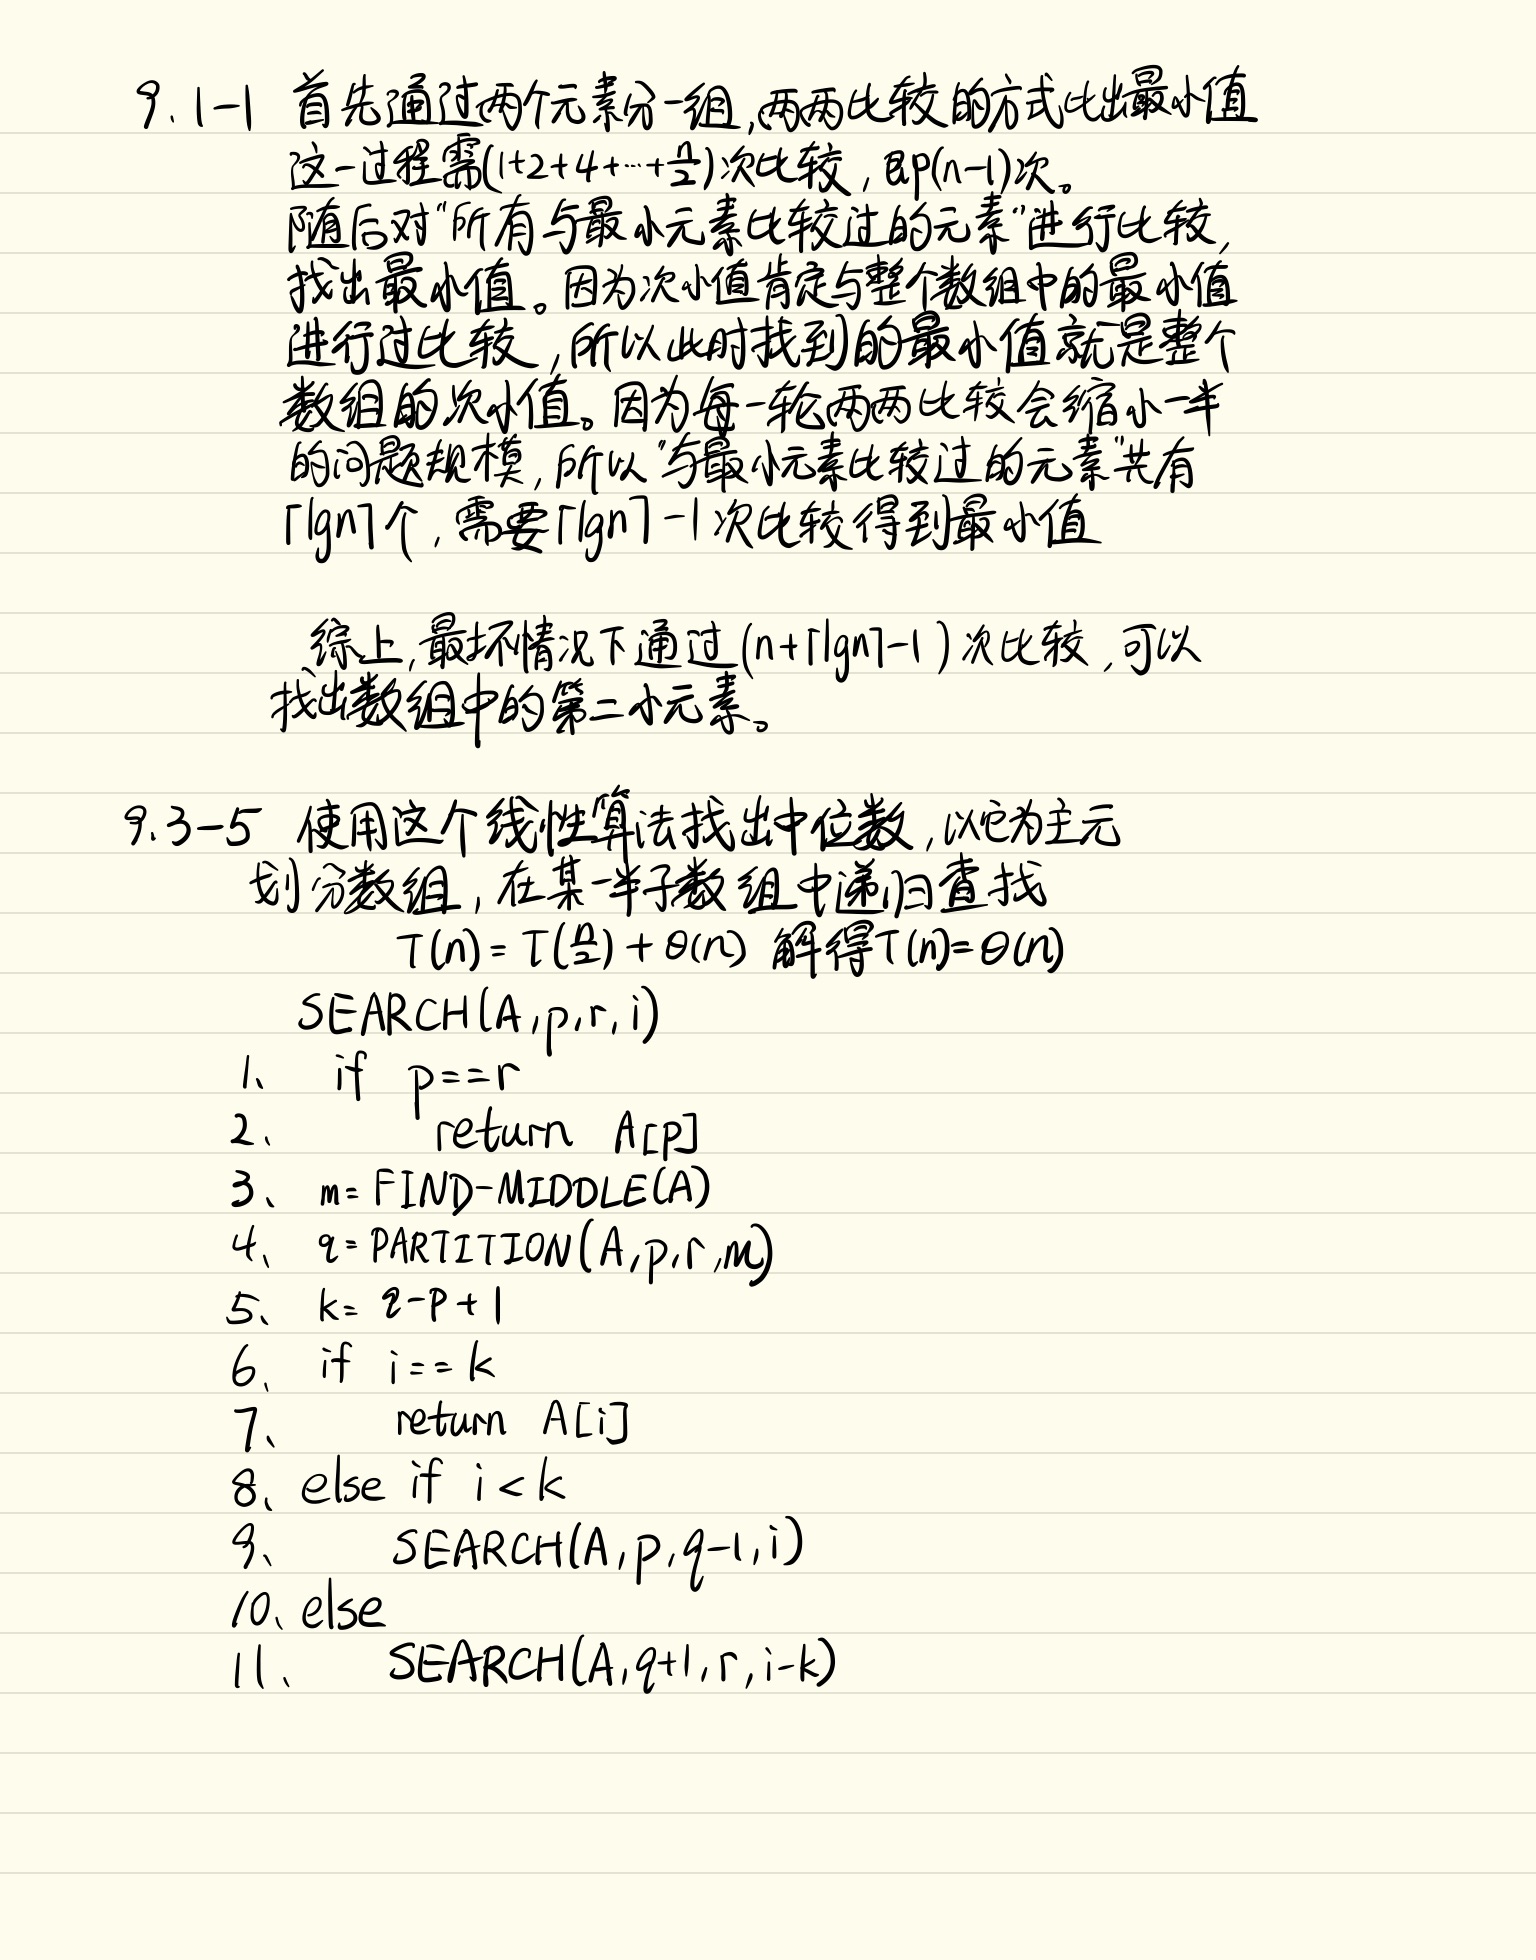 9.1-1 首先通过两个元素分一组,两两比较的方式比出最小值
这一过程需(1+2+4+…+n/2)次比较,即(n-1)次。
随后对“所有与最小元素比较过的元素”进行比较,
找出最小值。因为次小值肯定与整个数组中的最小值
进行过比较,所以此时找到的最小值就是整个
数组的次小值。因为每一轮两两比较会缩小一半
的问题规模,所以“与最小元素比较过的元素”共有
⌈lgn⌉个,需要⌈lgn⌉-1次比较得到最小值
综上,最坏情况下通过(n+⌈lgn⌉-1)次比较,可以
找出数组中的第二小元素。
9.3-5 使用这个线性算法找出中位数,以它为主元
划分数组,在某一半子数组中递归查找
T(n)=T(n/2)+θ(n) 解得T(n)=θ(n)
SEARCH(A,p,r,i)
1、 if p==r
2、 return A[p]
3、 m=FIND-MIDDLE(A)
4、 q=PARTITION(A,p,r,m)
5、 k=q-p+1
6、 if i==k
7、 return A[i]
8、 else if i<k
9、 SEARCH(A,p,q-1,i)
10、 else
11、 SEARCH(A,q+1,r,i-k)